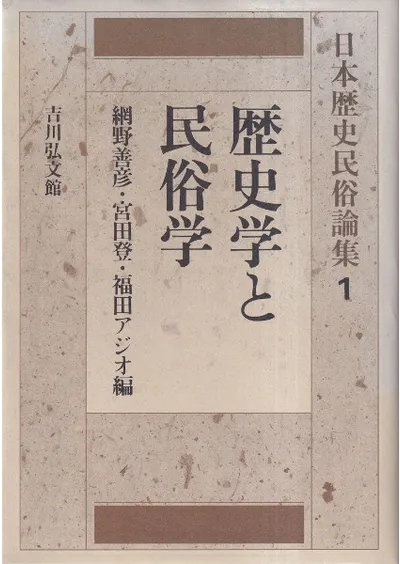 日本歴史民俗論集1
歴史学と
民俗学
網野善彦・宮田登・福田アジオ編
吉川弘文館